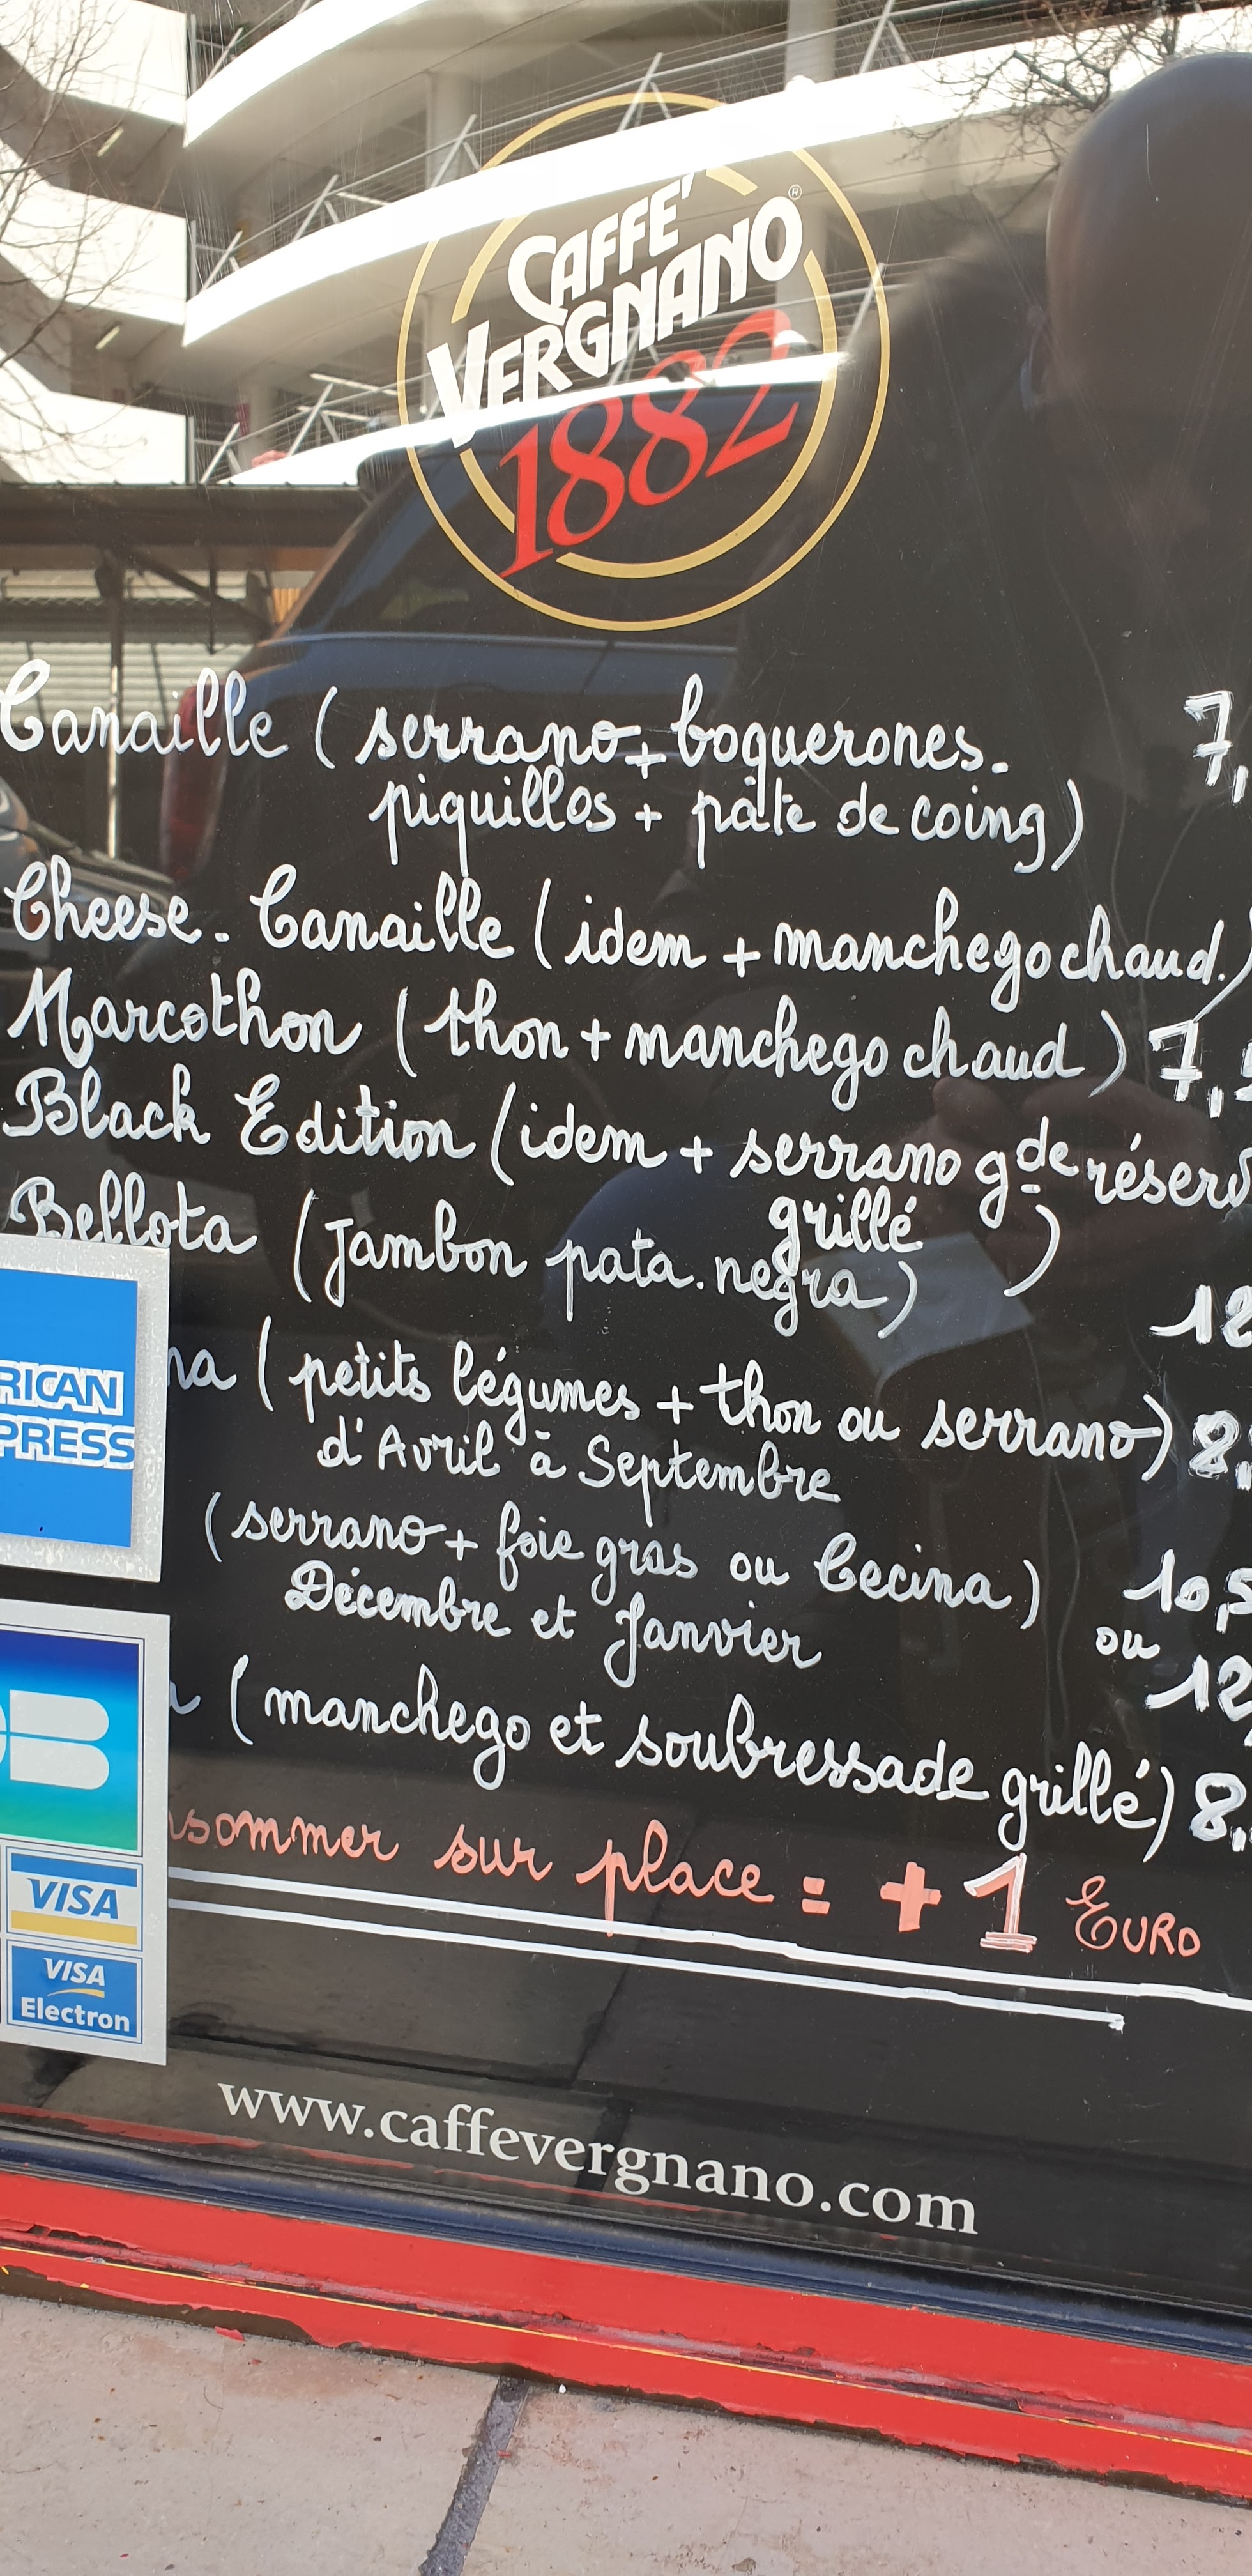 CAFFE'
VERGNANO®
1882
Canaille ( serrano + boquerones. 7,
piquillos + pâte de coing)
Cheese-Canaille (idem + manchego chaud)
Marcothon (thon + manchego chaud) 7,
Black Edition (idem + serrano gde réserv
grillé )
Bellota (Jambon pata.negra) 12
na (petits légumes + thon ou serrano) 8,
d'Avril à Septembre
(serrano + foie gras ou Cecina) 10,5
Décembre et Janvier ou 12,
(manchego et soubressade grillé) 8,
sommer sur place = + 1 EURO
RICAN
PRESS
B
VISA
VISA
Electron
www.caffevergnano.com